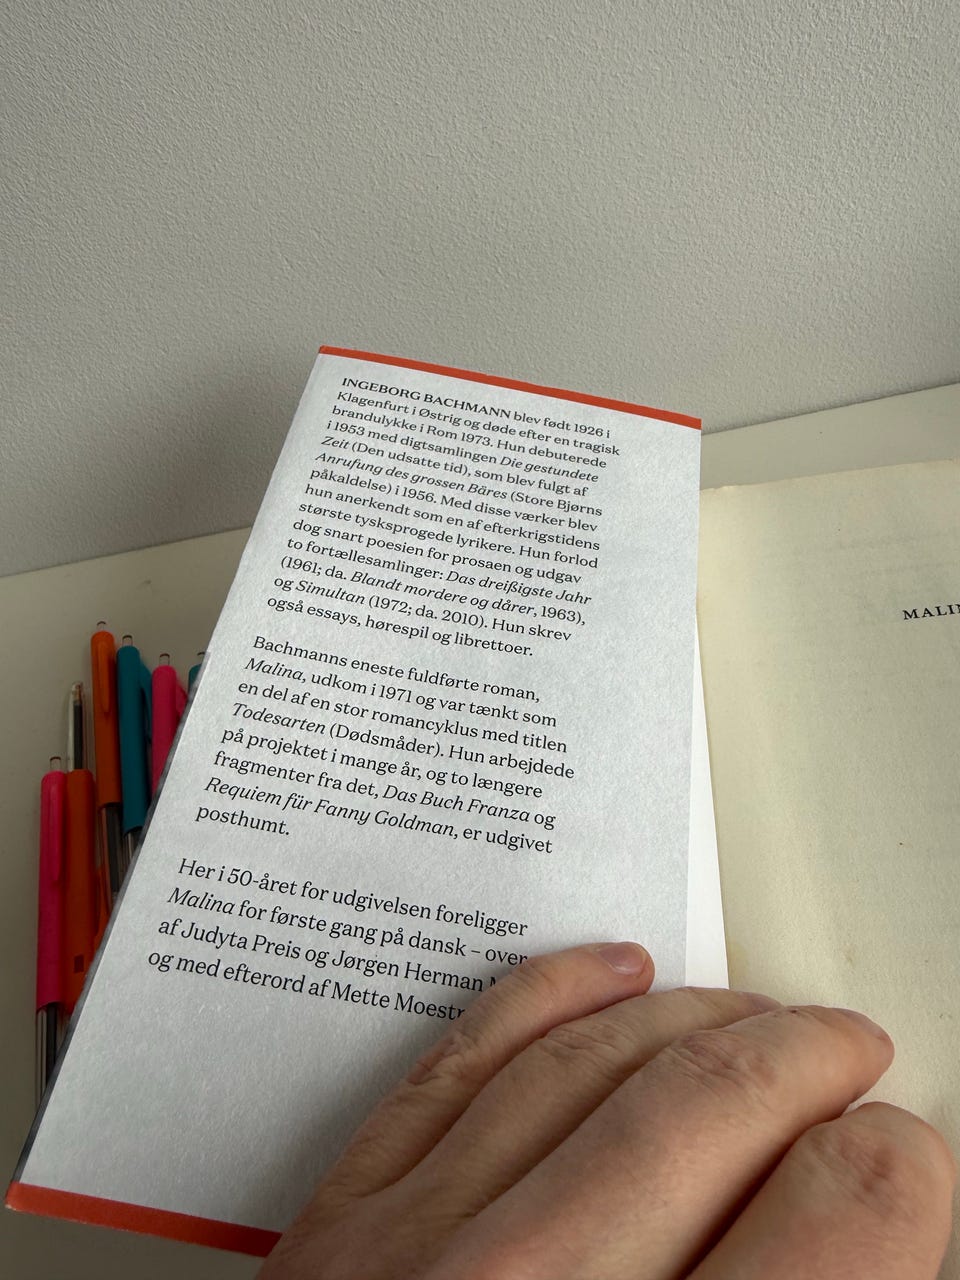 INGEBORG BACHMANN blev født 1926 i
Klagenfurt i Østrig og døde efter en tragisk
brandulykke i Rom 1973. Hun debuterede
i 1953 med digtsamlingen Die gestundete
Zeit (Den udsatte tid), som blev fulgt af
Anrufung des grossen Bäres (Store Bjørns
påkaldelse) i 1956. Med disse værker blev
hun anerkendt som en af efterkrigstidens
største tysksprogede lyrikere. Hun forlod
dog snart poesien for prosaen og udgav
to fortællesamlinger: Das dreißigste Jahr
(1961; da. Blandt mordere og dårer, 1963),
og Simultan (1972; da. 2010). Hun skrev
også essays, hørespil og librettoer.
Bachmanns eneste fuldførte roman,
Malina, udkom i 1971 og var tænkt som
en del af en stor romancyklus med titlen
Todesarten (Dødsmåder). Hun arbejdede
på projektet i mange år, og to længere
fragmenter fra det, Das Buch Franza og
Requiem für Fanny Goldman, er udgivet
posthumt.
Her i 50-året for udgivelsen foreligger
Malina for første gang på dansk – over
af Judyta Preis og Jørgen Herman
og med efterord af Mette Moestr
MALIN